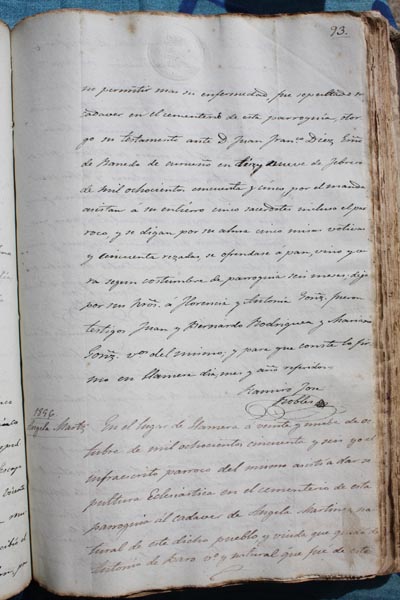 93.
no permitir mas su enfermedad, fue sepultado su
cadaver en el cementerio de esta parroquia, otor-
go su testamento ante D. Juan Franco. Diez, Esño
de Barrio de en diez y nueve de febrero
de mil ochocientos cincuenta y cinco por el manda
asistan á su entierro cinco sacerdotes incluso el par-
roco, y se digan por su alma cinco misas votivas
y cincuenta rezadas, se ofrendase á pan, vino y ce-
ra segun costumbre de parroquia seis meses, dejo
por sus hros. á Florencia y Antonia Gonz. fueron
testigos Juan y Bernardo Rodriguez y Mariano
Gonz. vos. del mismo, y para que conste lo fir-
mo en Llamera dia, mes y año referidos.
Ramiro
Robles
1856.
Angela Martz.
En el lugar de Llamera á veinte y nueve de oc-
tubre de mil ochocientos cincuenta y seis yo el
infraescrito parroco del mismo asistí a dar se-
pultura Eclesiastica en el cementerio de esta
parroquia al cadaver de Angela Martinez na-
tural de este dicho pueblo y viuda que quedó de
Antonio de Caro vo. y natural que fue de este